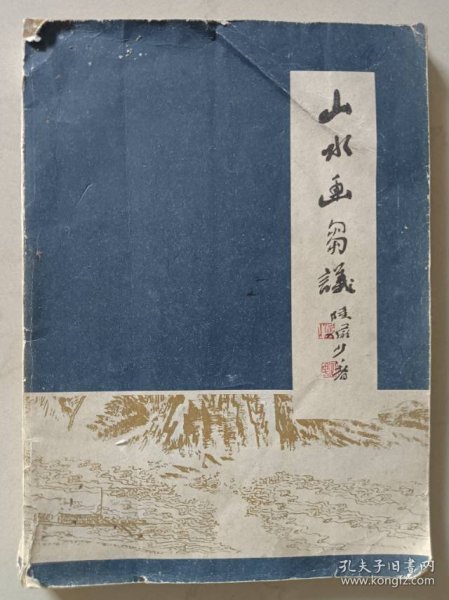 山水画芻議
陸儼少著
孔夫子旧書网
www.kongfz.com